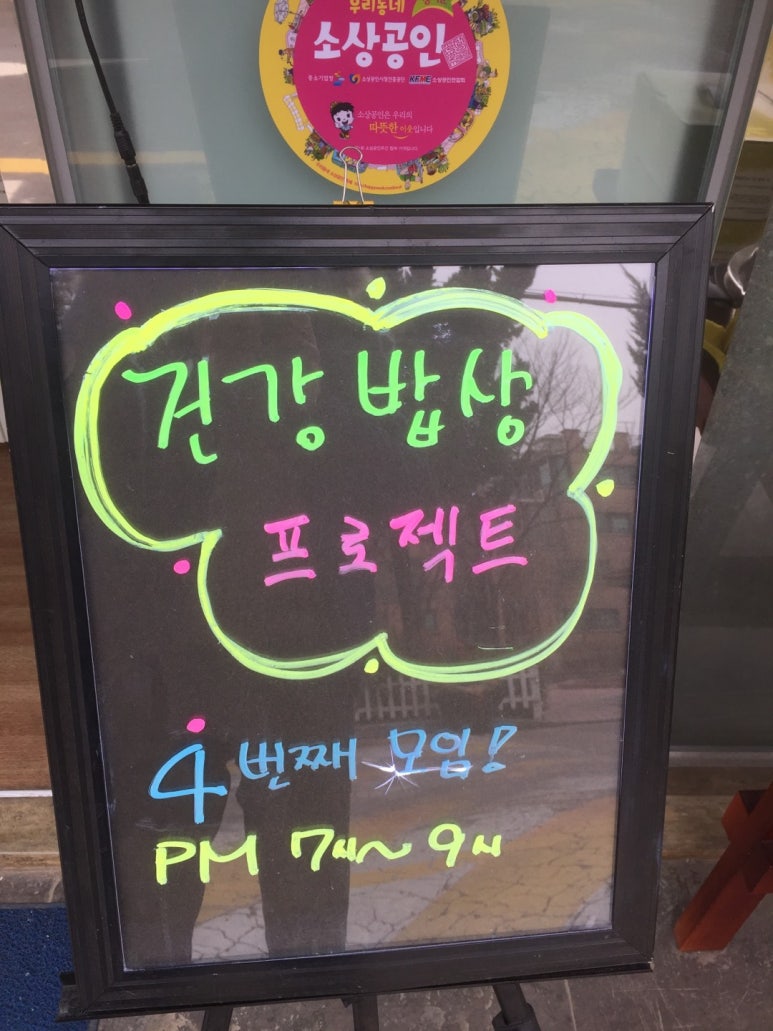 우리동네
소상공인
중소기업청 소상공인시장진흥공단 KFME 소상공인연합회
소상공인은 우리의
따뜻한 이웃입니다
건강 밥상
프로젝트
4 번째 모임!
PM 7시~ 9시